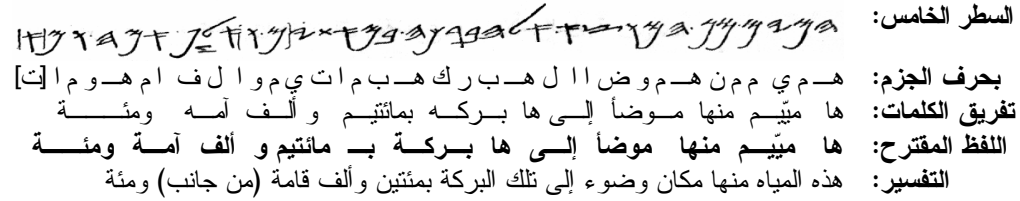 السطر الخامس:
بحرف الجزم: هـم ي م م ن هـم و ض ا ا ل هـ ب ر ك هـ ب م ا ت ي م و ا ل ف ا م هـ و م ا [ت]
تفريق الكلمات: ها ميّيم منها موضأ إلى ها بركه بمائتيم و ألف آمه ومئة
اللفظ المقترح: ها ميّيم منها موضأ إلى ها بركة بـ مائتيم و ألف آمة ومئة
التفسير: هذه المياه منها مكان وضوء إلى تلك البركة بمئتين وألف قامة (من جانب) ومئة